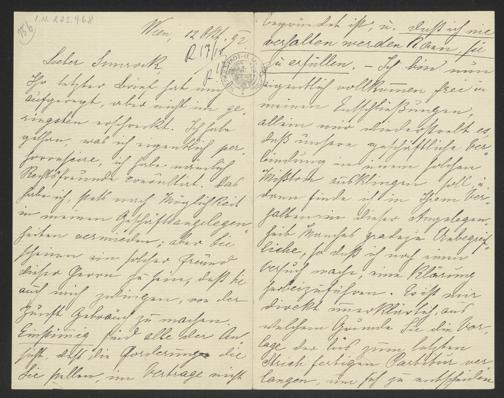 I.N. 202.468
Wien, 12 Okt. 92
Lieber Simrock.
Ihr letzter Brief hat mich
aufgeregt, aber nicht im ge-
ringsten erschreckt. Ich habe
gethan, was ich eigentlich per-
horrescire, ich habe nämlich
Rechtsfreunde consultirt. Das
habe ich stets nach Möglichkeit
in meinen Geschäftsangelegen-
heiten vermieden; aber Sie
scheinen ein solcher Freund
dieser Herren zu sein, daß Sie
auch mich zwingen, von der
Zunft Gebrauch zu machen.
Einstimmig sind alle der An-
sicht, daß die Forderung, die
Sie stellen, im Vertrage nicht
begründet ist, u. daß ich nie
verhalten werden kann, sie
zu erfüllen. – Ich bin nun
eigentlich vollkommen frei in
meinen Entschließungen,
allein mir widerstrebt es,
daß unsere geschäftliche Ver-
bindung in einem solchen
Mißton ausklingen soll, u.
dann finde ich in Ihrem Ver-
halten in dieser Angelegen-
heit Manches geradezu Unbegreif-
liche, so daß ich noch einen
Versuch mache, eine Klärung
herbeizuführen. Es ist mir
direkt unerklärlich, aus
welchem Grunde Sie die Vor-
lage der bis zum letzten
Strich fertigen Partitur ver-
langen, um sich zu entscheiden